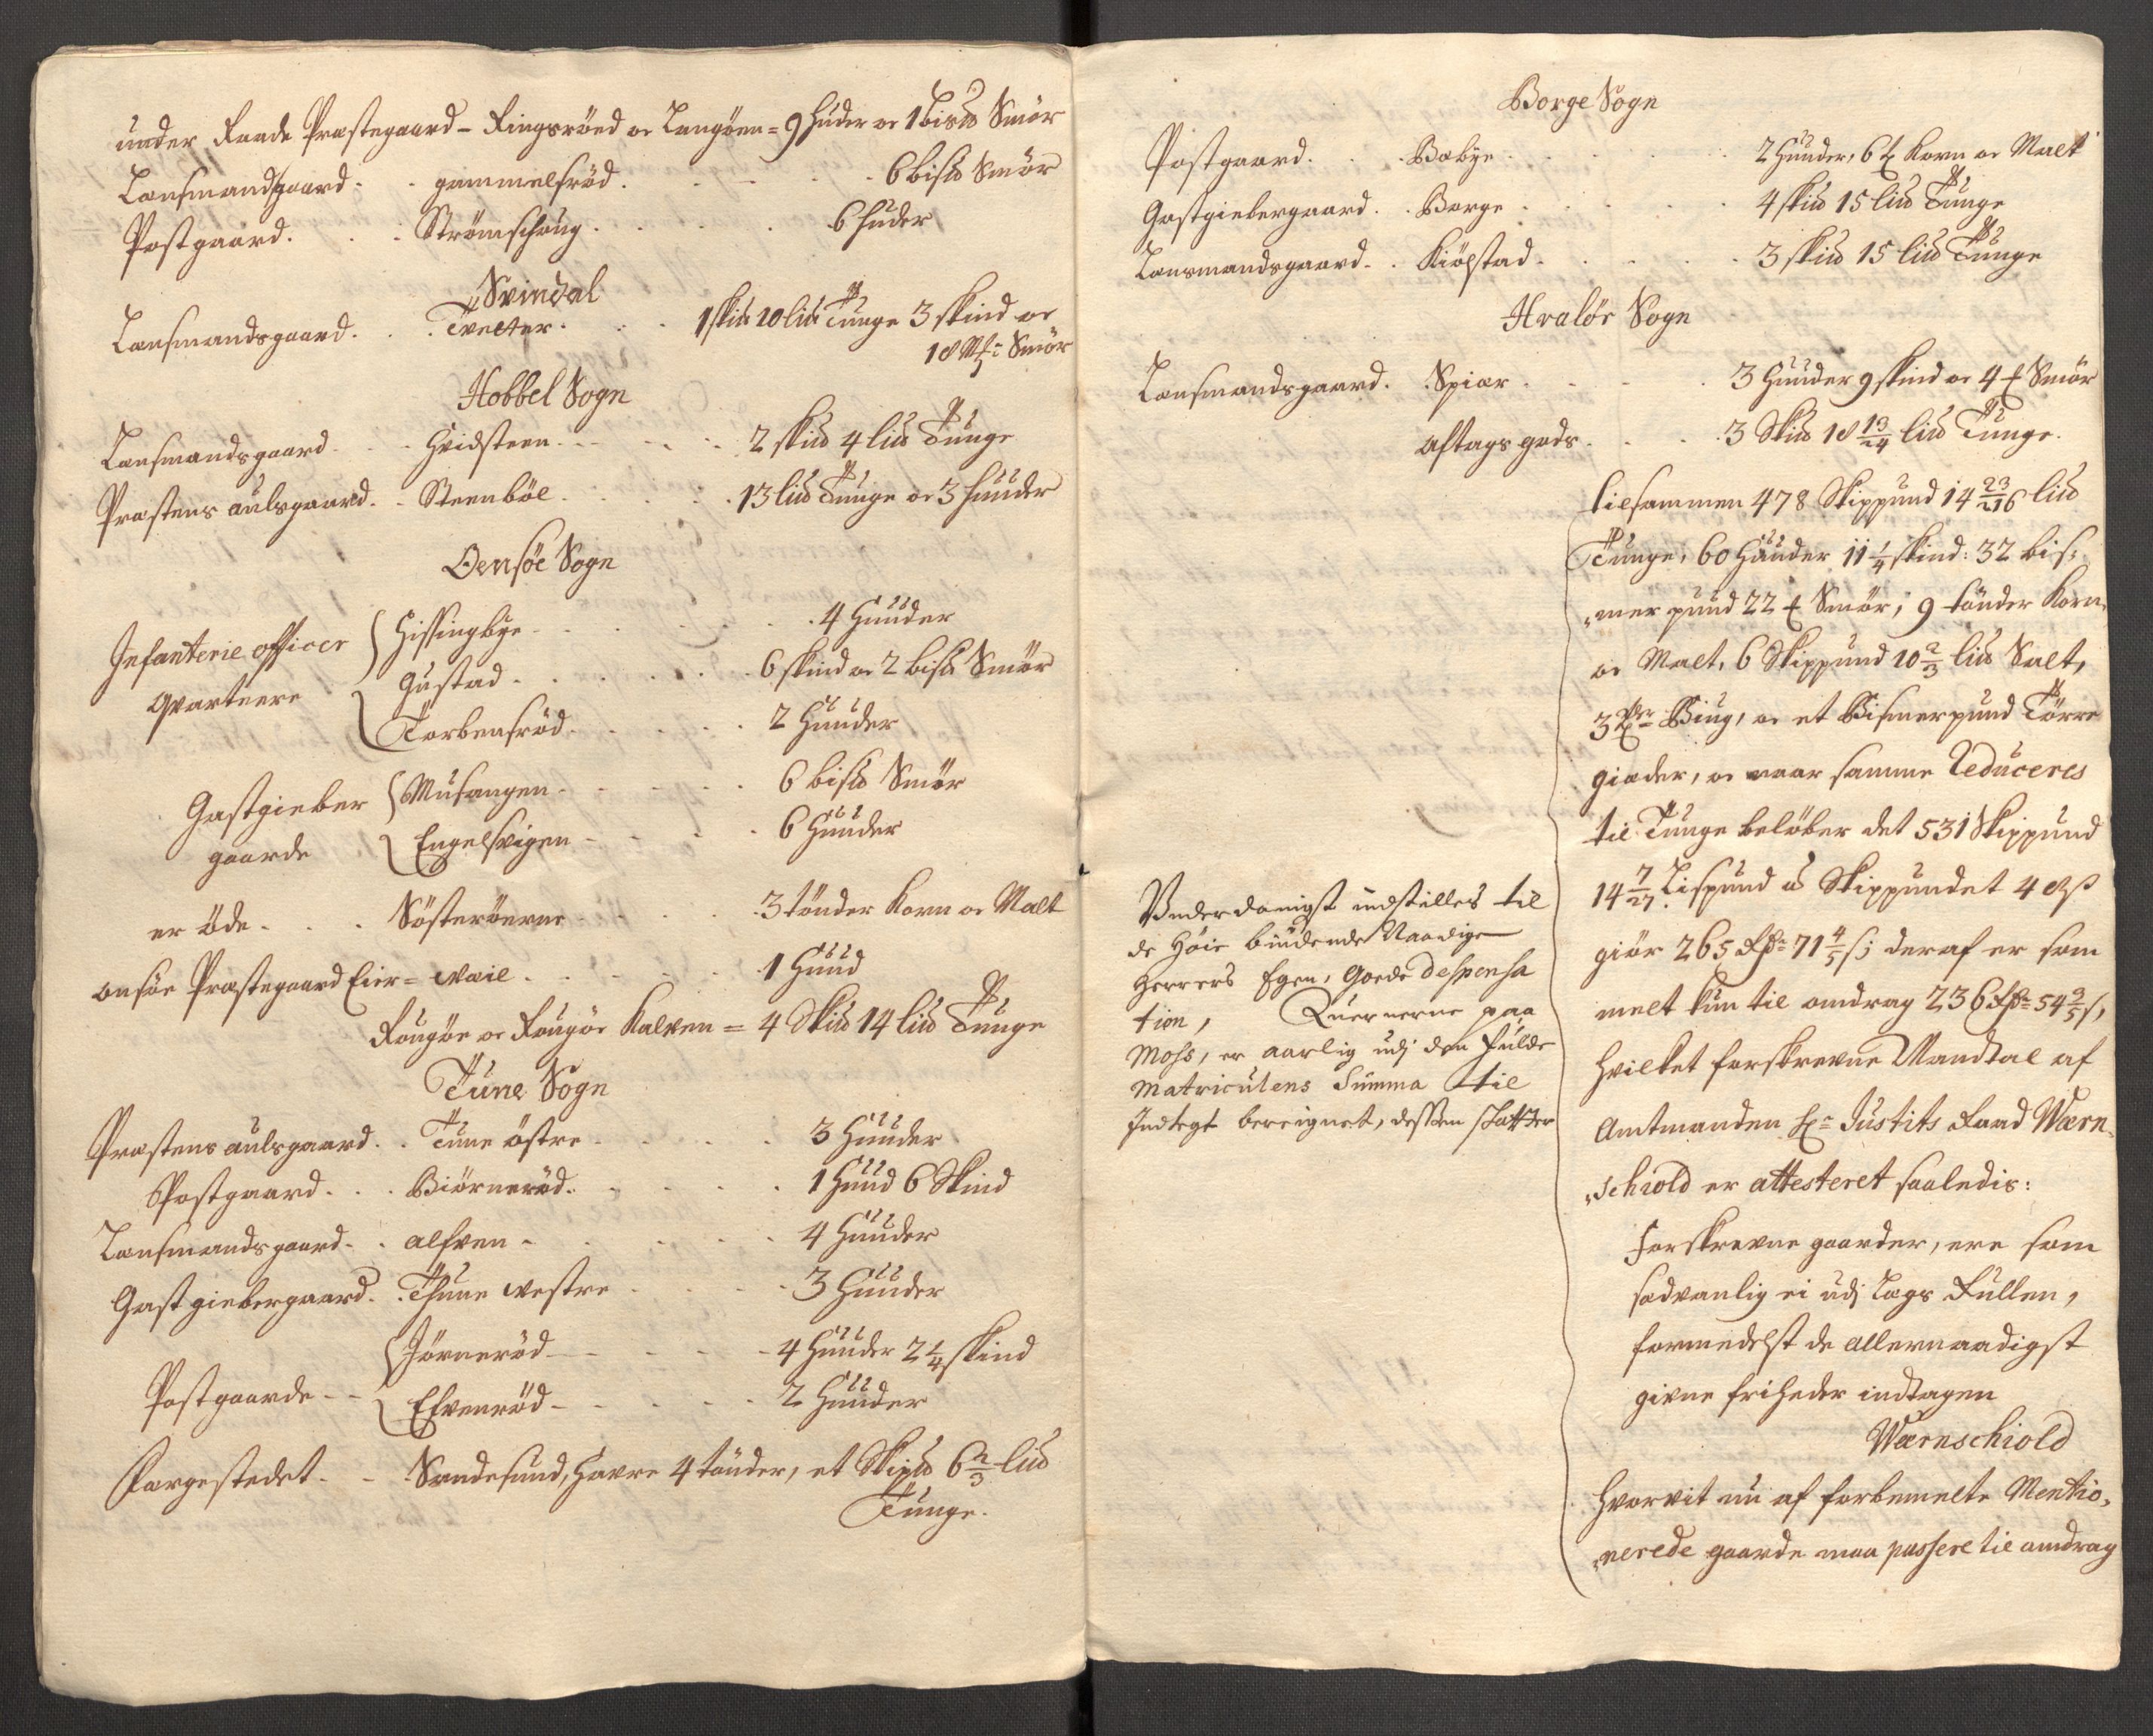 under Raade Præstegaard - Ringsröed oc Langöen = 9 huder oc 1 bis℔ Smör
Lensmandsgaard . . gammelsröd . . . 6 bis℔ Smör
Postgaard . . . Strömshaug . . . 6 huder
Svindal
Lensmandsgaard . . Tveeter . . . 1 ski℔ 10 li℔ Tunge 3 skind oc
18 Mk: Smör
Hobbel Sogn
Lensmandsgaard . . Hvidsteen . . . 2 ski℔ 4 li℔ Tunge
Præstens aulsgaard . . Steenböl . . . 13 li℔ Tunge oc 3 huuder
Oensöe Sogn
Infanterie officer
qvarteere
Hissingbye . . . 4 Huuder
Gustad . . . 6 skind oc 2 bis℔ Smör
Torbensröd . . . 2 Huuder
Gastgieber
gaarde
Musangen . . . 6 bis℔ Smör
Engelsvigen . . . 6 Huuder
er öde . . . Sösteröerne . . . 3 tönder Korn oc Malt
onsöe Præstegaard Eier = Vaie . . . 1 Huud
Raugöe oc Raugöe Kalven = 4 Ski℔ 14 li℔ Tunge
Tune Sogn
Præstens aulsgaard . . Tune östre . . . 3 Huuder
Postgaard . . . Biörneröd . . . 1 Huud 6 Skind
Lensmandsgaard . . alfven . . . 4 Huuder
Gastgiebergaard . Thune vestre . . . 3 Huuder
Postgaarde - -
Jörneröd . . . 4 Huuder 2 1/4 skind
Elfveröd . . . 2 Huuder
Færgestedet . . Sandesund, Havre 4 tönder, et Skip℔ 6 2/3 li℔
Tunge.
Borge Sogn
Postgaard . . . Bobye . . . 2 Huuder, 6 t Korn oc Malt
Gastgiebergaard . . Borge . . . 4 ski℔ 15 li℔ Tunge
Lensmandsgaard . . Kiölstad . . . 3 ski℔ 15 li℔ Tunge
Hvalör Sogn
Lensmandsgaard . Spiær . . . 3 Huuder 9 skind oc 4 t Smör
aftags gods . . . 3 Ski℔ 18 13/24 li℔ Tunge.
tilsammen 478 Skippund 14 23/216 li℔
Tunge, 60 Huuder 11 1/4 skind: 32 bis:
mer pund 22 t Smör, 9 tönder Korn
oc Malt, 6 Skippund 10 2/3 li℔ Salt,
3 Tdr Biug, oc et Bismerpund Törre
gieder, oc naar samme Reduceres
til Tunge belöber det 531 Skippund
14 7/27 Lispund á Skippundet 4 Mß
giör 265 Rdr 71 4/5 s; deraf er som
melt kun til andrag 236 Rdr 54 3/5 s,
hvilket forskrevne Mandtal af
Amtmanden Hr Justits Raad Wærn,
schiold er attesteret saaledis:
Forskrevne gaarder, ere som
sædvanlig ei udj Lægs Rullen,
formedelst de allernaadigst
givne friheder indtagen
Wærnschiold
hvorvit nu af forbemelte Mentio,
nerede gaarde maa passere til andrag
Underdanigst indstilles til
de Höie biudende Naadige
Herrers Egen, Goede despensa
tion, Quernerne paa
Moss, er aarlig udj den fulde
Matriculens Summa til
Indtegt bereignet, dessen skatter